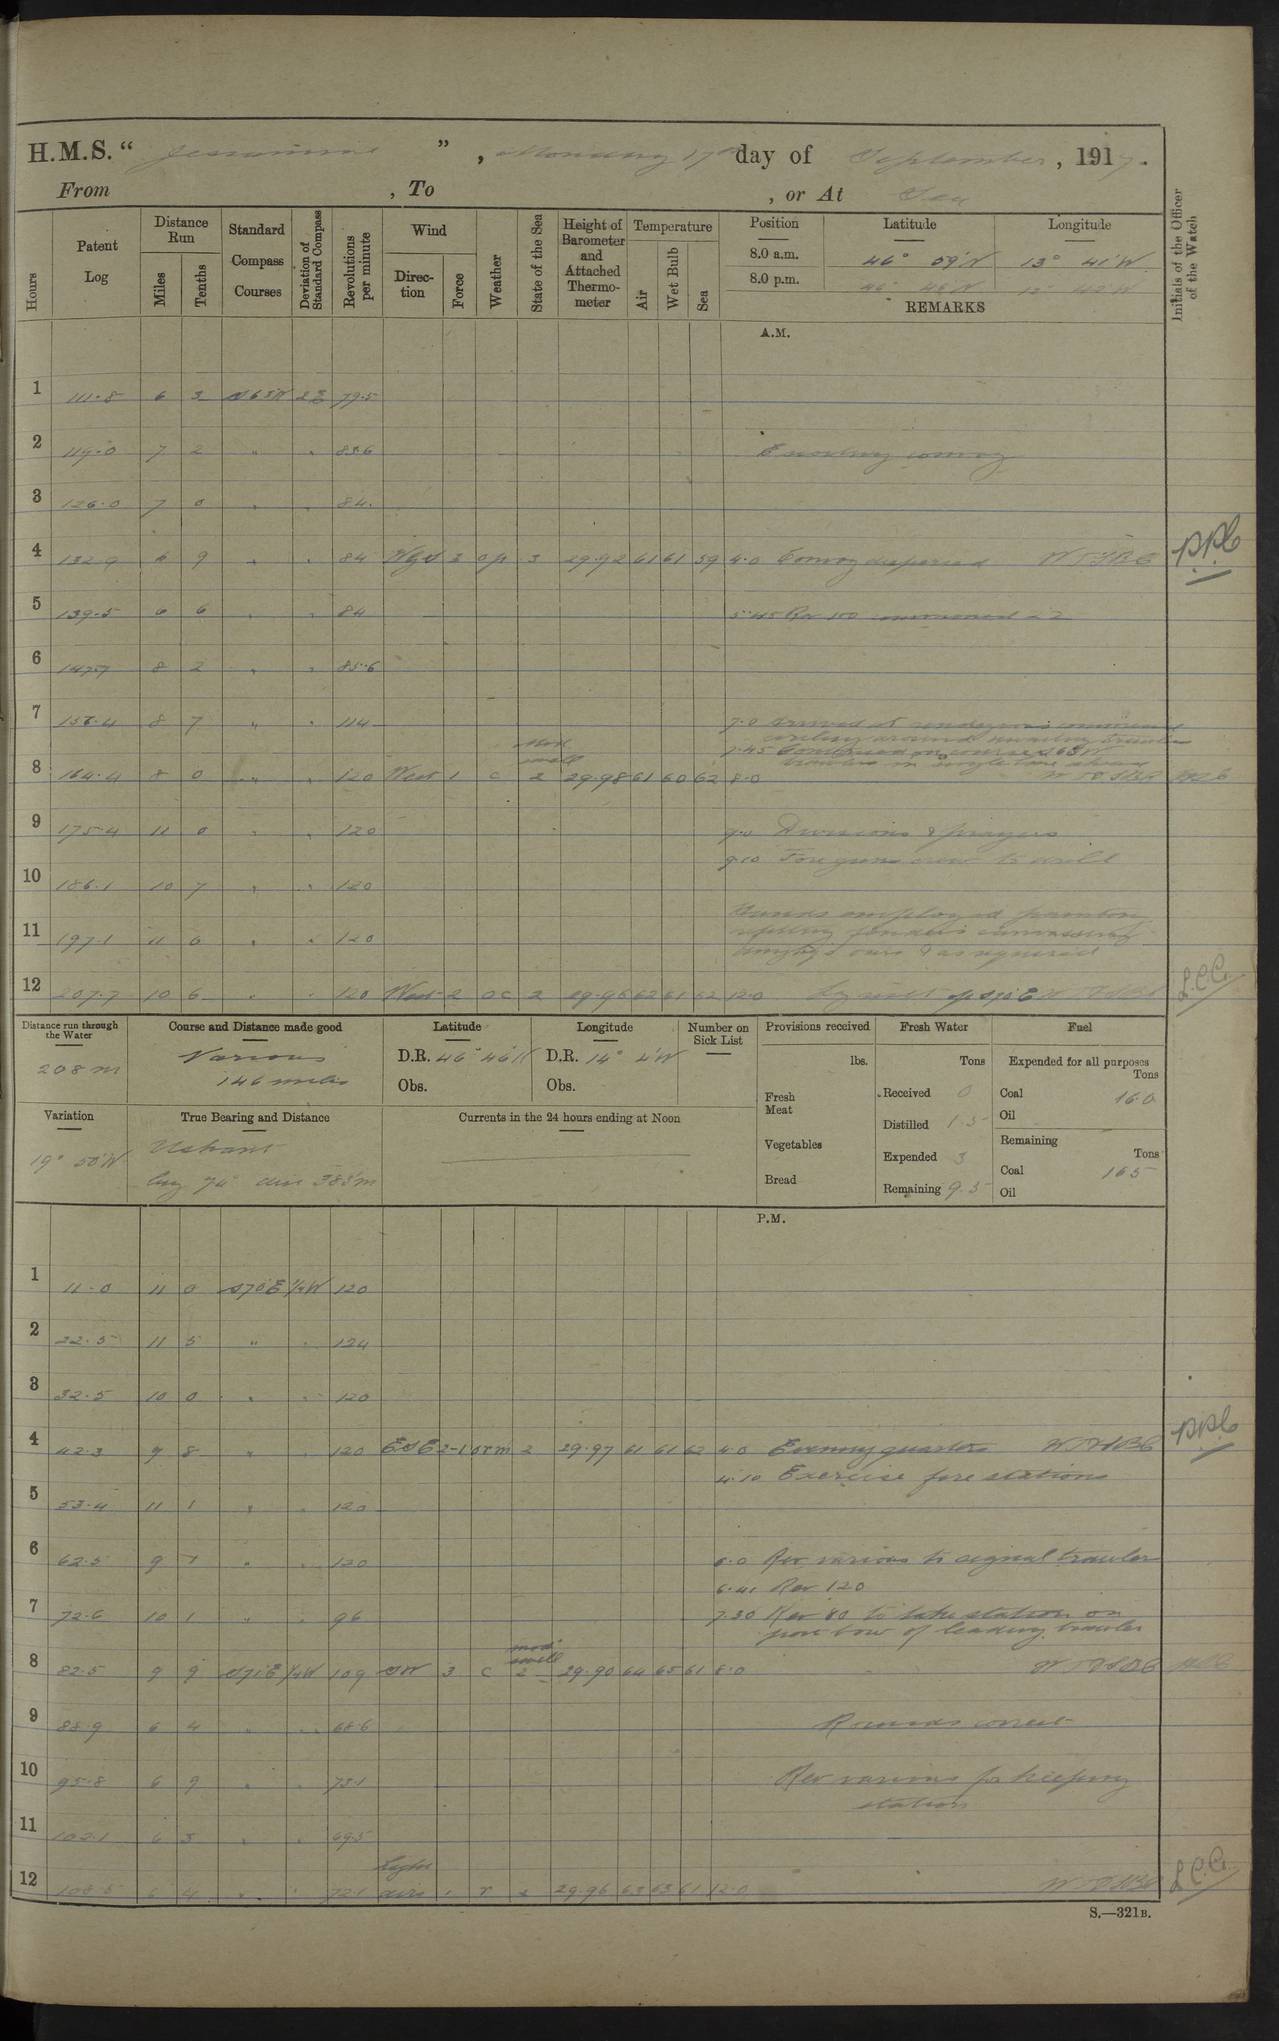 H.M.S. “ Jessamine ” , Monday 17th day of September , 1917.
From , To , or At Sea
Hours
Patent Log
Distance Run
Miles
Tenths
Standard Compass Courses
Deviation of Standard Compass
Revolutions per minute
Wind
Direction
Force
Weather
State of the Sea
Height of Barometer and Attached Thermometer
Temperature
Air
Wet Bulb
Sea
Position Latitude Longitude
8.0 a.m. 46° 09'N 13° 41'W
8.0 p.m. 46° 46'N 12° 42'W
REMARKS
Initials of the Officer of the Watch
A.M.
1 111.8 6 3 N63W 2E 79.5
2 119.0 7 2 " " 83.6 Escorting convoy
3 126.0 7 0 " " 84.
4 132.9 6 9 " " 84 3 op 3 29.92 61 61 59 4.0 Convoy dispersed
5 139.5 6 6 " " 84 5.45 Rev 100
6 147.7 8 2 " " 85.6
7 156.4 8 7 " " 114 7.0 Arrived at rendezvous
circling around awaiting trawlers
7.45 Continued on course
trawlers in single line abeam
mod swell
8 164.4 8 0 " " 120 West 1 c 2 29.98 61 60 62 8.0
9 175.4 11 0 " " 120 9.0 Divisions & prayers
9.10 Fore guns crew to drill
10 186.1 10 7 " " 120
Hands employed painting
refitting fenders
dinghy's oars & as required
11 197.1 11 0 " " 120
12 207.7 10 6 " " 120 West 2 oc 2 29.96 62 61 62 12.0 S70E
Distance run through the Water
208 m
Course and Distance made good
Various
146 miles
Latitude
D.R. 46° 46'N
Obs.
Longitude
D.R. 14° 4'W
Obs.
Number on Sick List
Provisions received
lbs.
Fresh Meat
Vegetables
Bread
Fresh Water
Tons
Received 0
Distilled 1.5
Expended 3
Remaining 9.5
Fuel
Expended for all purposes
Tons
Coal 16.0
Oil
Remaining
Tons
Coal 165
Oil
Variation
19° 50'W
True Bearing and Distance
Ushant
brg 74° dis 383 m
Currents in the 24 hours ending at Noon
P.M.
1 11.0 11 0 S70E ¼W 120
2 22.5 11 5 " " 124
3 32.5 10 0 " " 120
4 42.3 9 8 " " 120 ESE 2-1 orm 2 29.97 61 61 62 4.0 Evening quarters
4.10 Exercise fire stations
5 53.4 11 1 " " 120
6 62.5 9 1 " " 120 6.0 Rev various to signal trawler
6.41 Rev 120
7 72.6 10 1 " " 96 7.30 Rev 80 to take station on
port bow of leading trawler
mod swell
8 82.5 9 9 S71E ¼W 109 SW 3 c 2 29.90 64 65 61 8.0
9 88.9 6 4 " " 68.6 Rounds correct
10 95.8 6 9 " " 73.1 Rev various for keeping
station
11 102.1 6 3 " " 69.5
12 108.5 6 4 " " 72.1 Light airs 1 r 2 29.96 63 63 61 12.0
S.—321B.